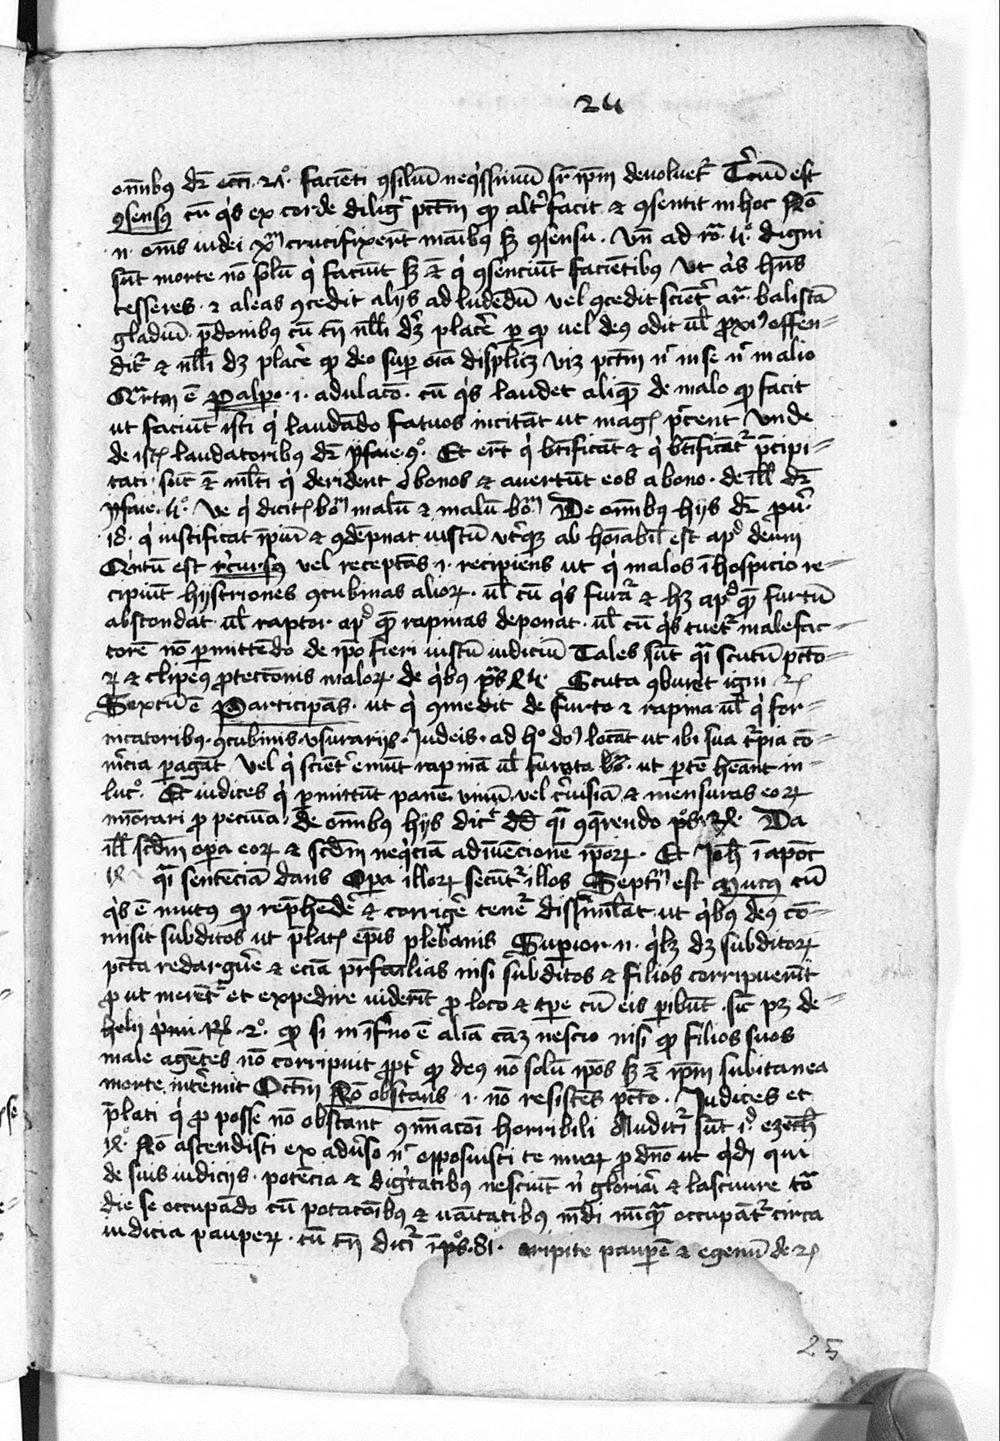 24
omnibus dr ecci. 27. facienti consilium nequissimum sr ipm devoluetur Tercium est
consensus cum quis ex corde diligit pctm quod alter facit et consentit in hoc Non
n. oms iudei xpm crucifixerunt manibus sed consensu. Vn ad ro. 1. digni
sunt morte non solum qui faciunt sed et qui consenciunt facientibus ut
tesseres et aleas concedit alijs ad ludendum vel concedit scienter balistam
gladium predonibus cum tn nulli debet placere per quod vel deus odit vel proximus offen-
ditur et nulli debet placere quod deo super omnia displicet viz pctm nec in se nec in alio
Quartum est Palpo. i. adulacio. cum quis laudet aliquem de malo quod facit
ut faciunt isti qui laudando fatuos incitant ut magis peccent Unde
de istis laudatoribus dr ysaie. 9. Et erunt qui beatificant et qui beatificantur precipi-
tati sunt et multi qui derident bonos et avertunt eos a bono. de illis dr
ysaie. 5. Ve qui dicitis bonum malum et malum bonum De omnibus hijs dr prou.
18. qui iustificat impium et condempnat iustum uterque abhominabilis est apud deum
Quintum est recursus vel receptans i. recipiens ut qui malos in hospicio re-
cipiunt hystriones concubinas aliorum. vel cum quis furatur et habet apud quem furtum
abscondat vel raptor apud quem rapinas deponat. vel cum quis tuetur malefac-
torem non permittendo de ipo fieri iustum iudicium Tales sunt quasi scutum pcto-
rum et clipeus protectionis malorum. de quibus ps Scuta comburet igni etc
Sextum est Participans. ut qui comedit de furto et rapina vel qui for-
nicatoribus concubinis usurarijs Iudeis ad hoc domum locant ut ibi sua turpia com-
mercia peragant Vel qui scienter emunt rapinam vel furata ut partem habeant in
lucro. Et iudices qui permittunt panem vinum vel cervisiam et mensuras eorum
minorari pro pecunia de omnibus hijs dicit dd quasi conquerendo ps Da
illis scdm opera eorum et scdm nequiciam adinvencionem iporum. Et Joh in apoc
quasi sentenciam dans Opera illorum secuntur illos Septimum est Mutus cum
quis est mutus quod reprehendere et corrigere tenetur dissimulat ut quibus deus com-
misit subditos ut prelatis epis plebanis Superior n. quilibet debet subditorum
pcta redarguere et eciam prfamilias nisi subditos et filios corripuerint
prout merentur et expedire viderint pro loco et tpe cum eis peribunt. sic patet de
hely primi. R. 2. quod si in inferno est aliam causam nescio nisi quod filios suos
male agentes non corripuit propter quod deus non solum ipos sed et ipm subitanea
morte interemit Octm Non obstans i. non resistens pcto. Iudices et
prelati qui pro posse non obstant cominacioni horribili Audituri sunt id ezech
Non ascendisti ex adverso nec opposuisti te murum pro domo ut quidam qui
de suis iudicijs potencia et dignitatibus nesciunt nisi gloriari et lascivire tota
die se occupando cum potacionibus et vanitatibus mundi nunquam occupantur circa
iudicia pauperum. cum tn dicitur in ps. 81. eripite pauperem et egenum de etc
25